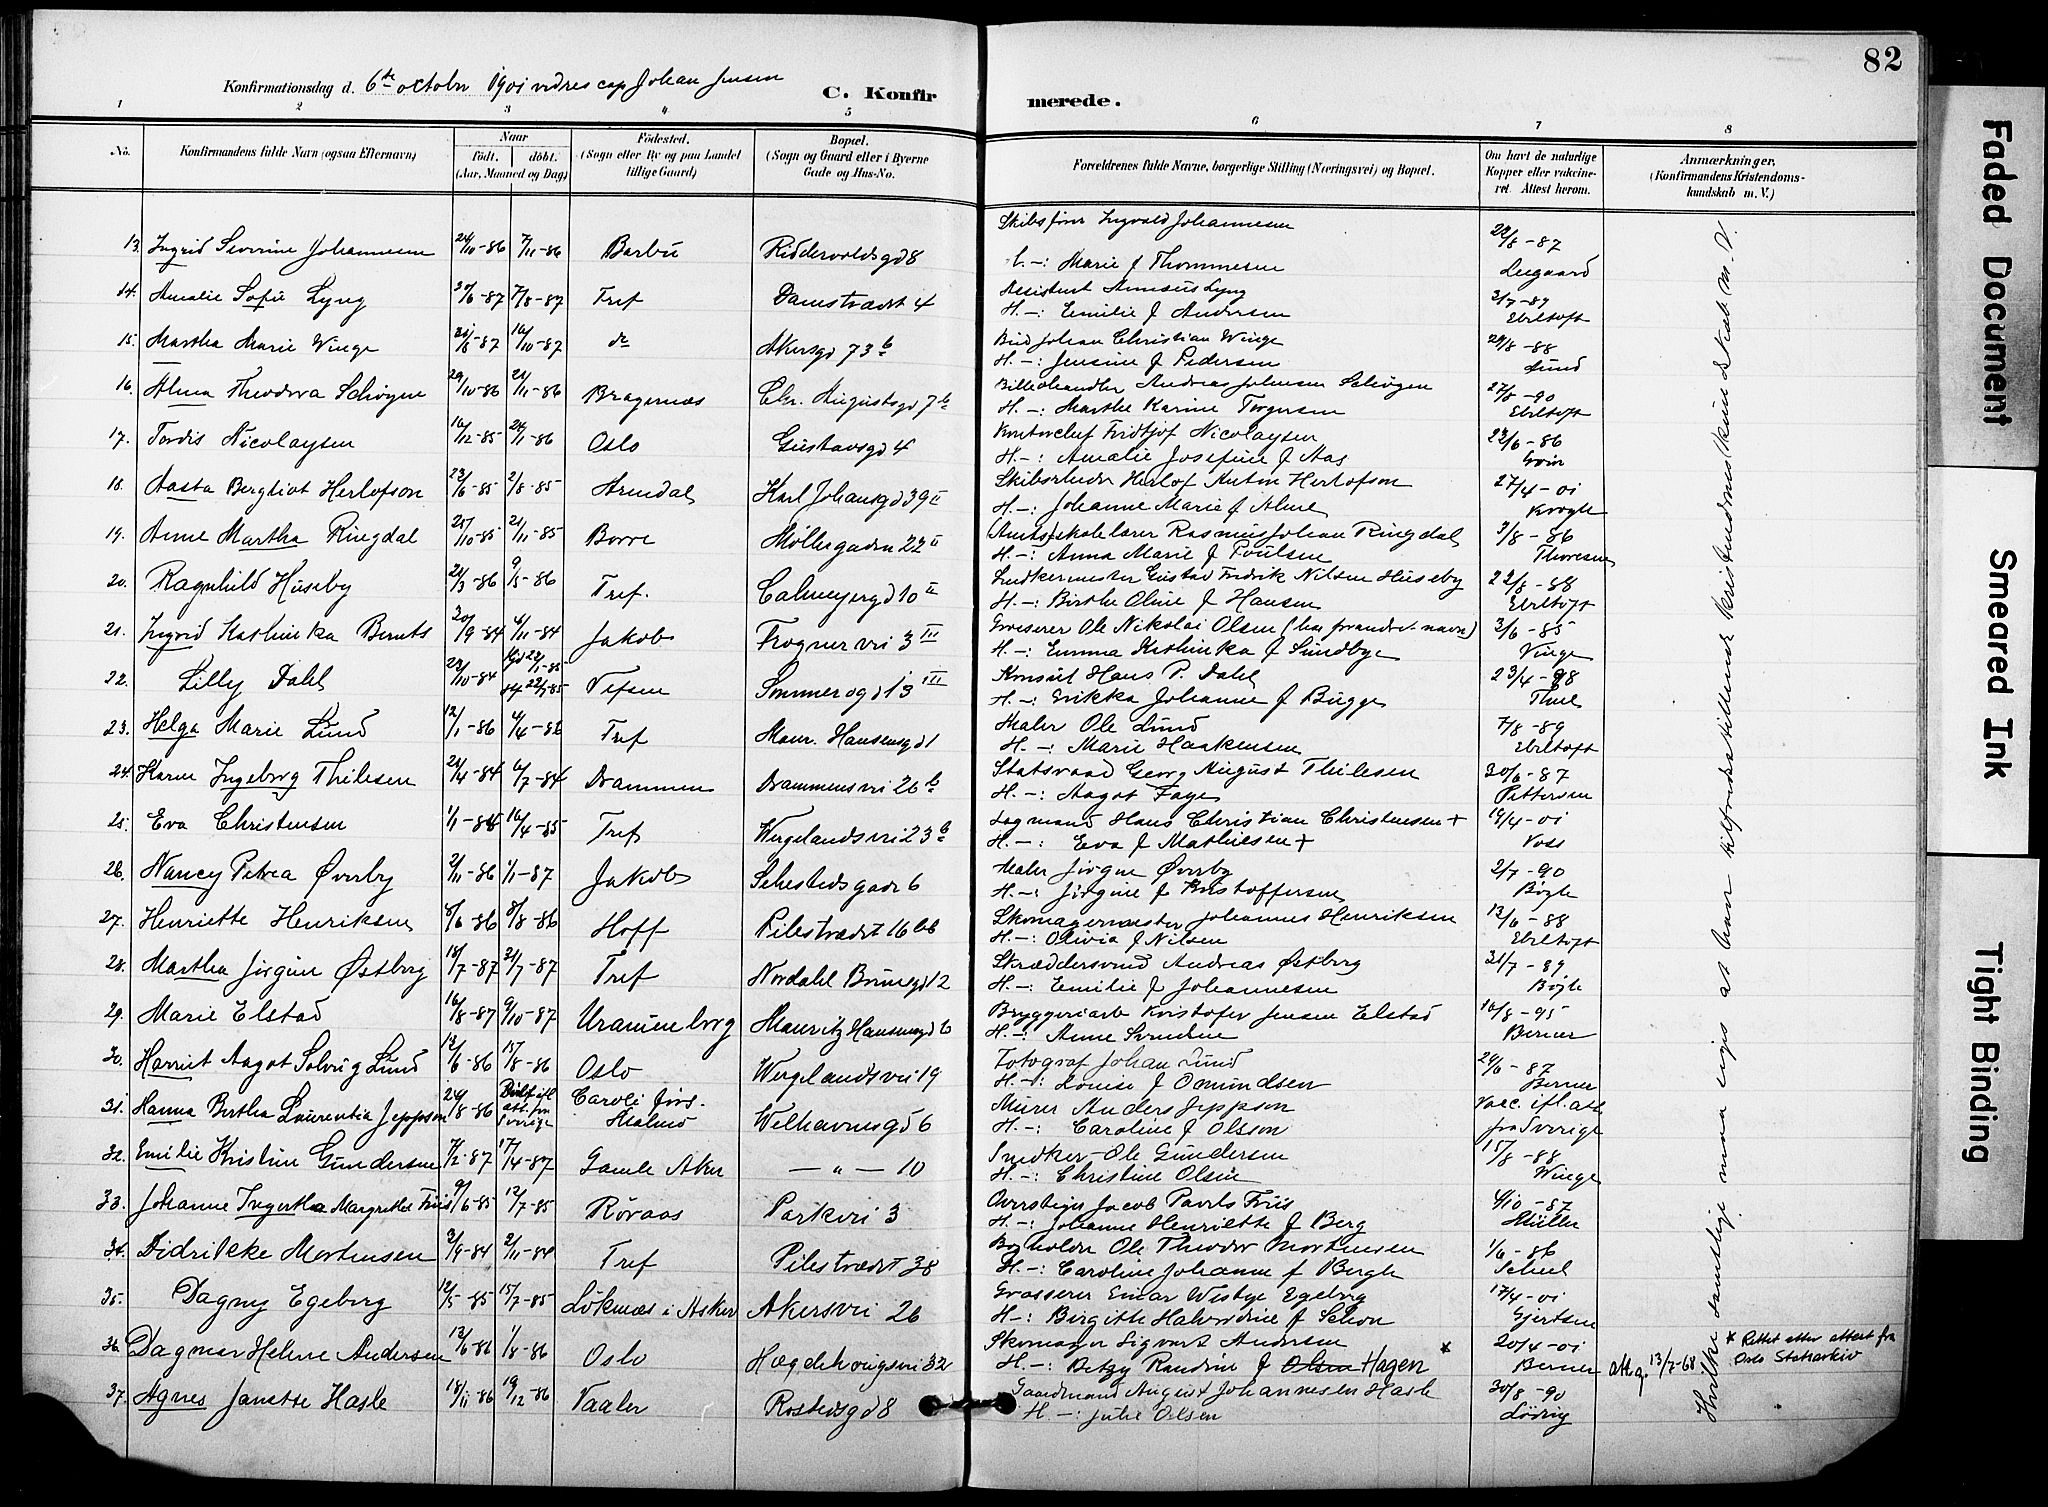 82
Konfirmationsdag d. 6te octobr 1901 ved res cap Johan Jensen
C. Konfirmerede.
1 2 3 4 5 6 7 8
No. Konfirmandens fulde Navn (ogsaa Efternavn) Naar født. døbt. (Aar, Maaned og Dag) Fødested. (Sogn eller By og paa Landet tillige Gaard) Bopæl. (Sogn og Gaard eller i Byerne Gade og Hus-No. Forældrenes fulde Navne, borgerlige Stilling (Næringsvei) og Bopæl. Om havt de naturlige Kopper eller vakcineret. Attest herom. Anmærkninger. (Konfirmandens Kristendomskundskab m. V.)
13. Ingrid Severine Johannesen 24/10-86 7/11-86 Barbu Riddervoldsgd 8 Skibsfører Ingvald Johannesen 22/8-87
H.-: Marie f Thommesen
14. Amalie Sofie Lyng 30/6-87 7/8-87 Tref Damstrædet 4 Assistent Lyng 2/7-89
H.-: Emilie f Andersen Ebeltoft
15. Martha Marie Winge 21/8-87 16/10-87 do Akersgd 73b Bud Johan Christian Winge 29/8-88
H.-: Jensine f Pedersen Lund
16. Alma Theodora Schøyen 29/10-86 21/11-86 Bragernæs Chr. Augustsgd 7b Andreas Johnsen Schøyen 27/8-90
H.-: Marthe Karine Torgersen Ebeltoft
17. Tordis Nicolaysen 16/12-85 24/1-86 Oslo Gustavsgd 4 Kontorchef Fridtjof Nicolaysen 23/6-86
H.-: Amalie Josefine f Aas
18. Aasta Bergliot Herlofson 23/6-85 2/8-85 Arendal Karl Johansgd 39 II Skibsreder Herlof Anton Herlofson 27/4-01
H.-: Johanne Marie f Alme
19. Anne Martha Ringdal 25/10-85 21/11-85 Borre Møllergaden 22 II (Amts)skolelærer Rasmus Johan Ringdal 3/8-86
H.-: Anna Marie f Poulsen Thoresen
20. Ragnhild Huseby 21/3-86 9/5-86 Tref. Calmeyergd 10 II Snedkermester Gustav Fredrik Nilsen Huseby 22/8-88
H.-: Birthe Oline f Hansen Ebeltoft
21. Ingrid Kathinka Bernts 20/9-84 4/11-84 Jakob Frognervei 3 III Grosserer Ole Nikolai Olsen (har forandret navn) 3/6-85
H.-: Emma Kathinka f Sundbye Vinge
22. Lilly Dahl 23/10-84 Hjd 22/1-85 Vefsen Sommerogd 13 III Konsul Hans P. Dahl 23/4-98
H.-: Erikka Johanne f Bugge
23. Helga Marie Lund 12/1-86 4/4-86 Tref Maur. Hansensgd 1 Maler Ole Lund 7/8-89
H.-: Marie Haakensen Ebeltoft
24. Karen Ingeborg Thilesen 21/4-84 6/7-84 Drammen Drammensvei 26b Statsraad Georg August Thilesen 30/6-87
H.-: Aagot Faye Pettersen
25. Eva Christensen 1/1-84 16/4-85 Tref Wergelandsvei 23b Lagmand Hans Christian Christensen + 19/4-01
H.-: Eva f Mathiesen + Voss
26. Nancy Petrea Øverby 2/11-86 1/1-87 Jakob Sehestedsgade 6 Maler Jørgen Øverby 2/7-90
H.-: Jørgine f Kristoffersen Bøgh
27. Henriette Henriksen 8/6-86 8/8-86 Hoff Pilestrædet 16bb Skomagermester Johannes Henriksen 13/6-88
H.-: Olivia f Nilsen Ebeltoft
28. Martha Jørgine Østberg 10/7-87 31/7-87 Tref Nordahl Brunsgd 12 Skræddersvend Andreas Østberg 31/7-89
H.-: Emilie f Johannesen Bøgh
29. Marie Elstad 16/8-87 9/10-87 Uranienborg Mauritz Hansensgd 6 Bryggeriarb Kristofer Jensen Elstad 16/8-95
H.-: Anne Svendsen Berner
30. Harriet Aagot Solveig Lund 12/6-86 15/8-86 Oslo Wergelandsvei 19 Fotograf Johan Lund 24/6-87
H.-: Louise f Omundsen Berner
31. Hanna Bertha Laurentia Jeppson 24/8-86 Døbt ifl att. fra Sverige Caroli förs. Malmö Welhavensgd 6 Murer Anders Jeppson Vacc. ifl. att
H.-: Caroline f Olsson fra Sverige
32. Emilie Kristine Gundersen 7/2-87 17/4-87 Gamle Aker — " — 10 Snedker Ole Gundersen 15/8-88
H.-: Christine Olsen Winge
33. Johanne Ingertha Margrethe Friis 9/6-85 12/7-85 Røraas Parkvei 3 Overstiger Jacob Pavels Friis 4/10-87
H.-: Johanne Henriette f Berg Müller
34. Didrikke Mortensen 3/9-84 2/11-84 Tref Pilestrædet 38 Ole Theodor Mortensen 1/6-86
H.-: Caroline Johanne f Bergh Scheel
35. Dagny Egeberg 12/5-85 15/7-85 Løknæs i Asker Akersvei 26 Grosserer Einar Westye Egeberg 17/4-01
H-: Birgitte Halvordine f Schou Gjertsen
36. Dagmar Helene Andersen 13/6-86 1/8-86 Oslo Hægdehougsvei 32 Skomager Sigvart Andersen 20/4-01 * Rettet etter attest fra
H.-: Betzy Randine f Olsen Hagen * Berner Att.g. 13/2-68 Oslo Statsarkiv
37. Agnes Janette Hasle 18/11-86 19/12-86 Vaaler Rostedsgd 8 Gaardmand August Johannesen Hasle 30/8-90
H.-: Julie Olsen
Hvilke samtlige maa siges at have tilfredsstillende kristendomskundskab m. V.
Faded Document
Smeared Ink
Tight Binding